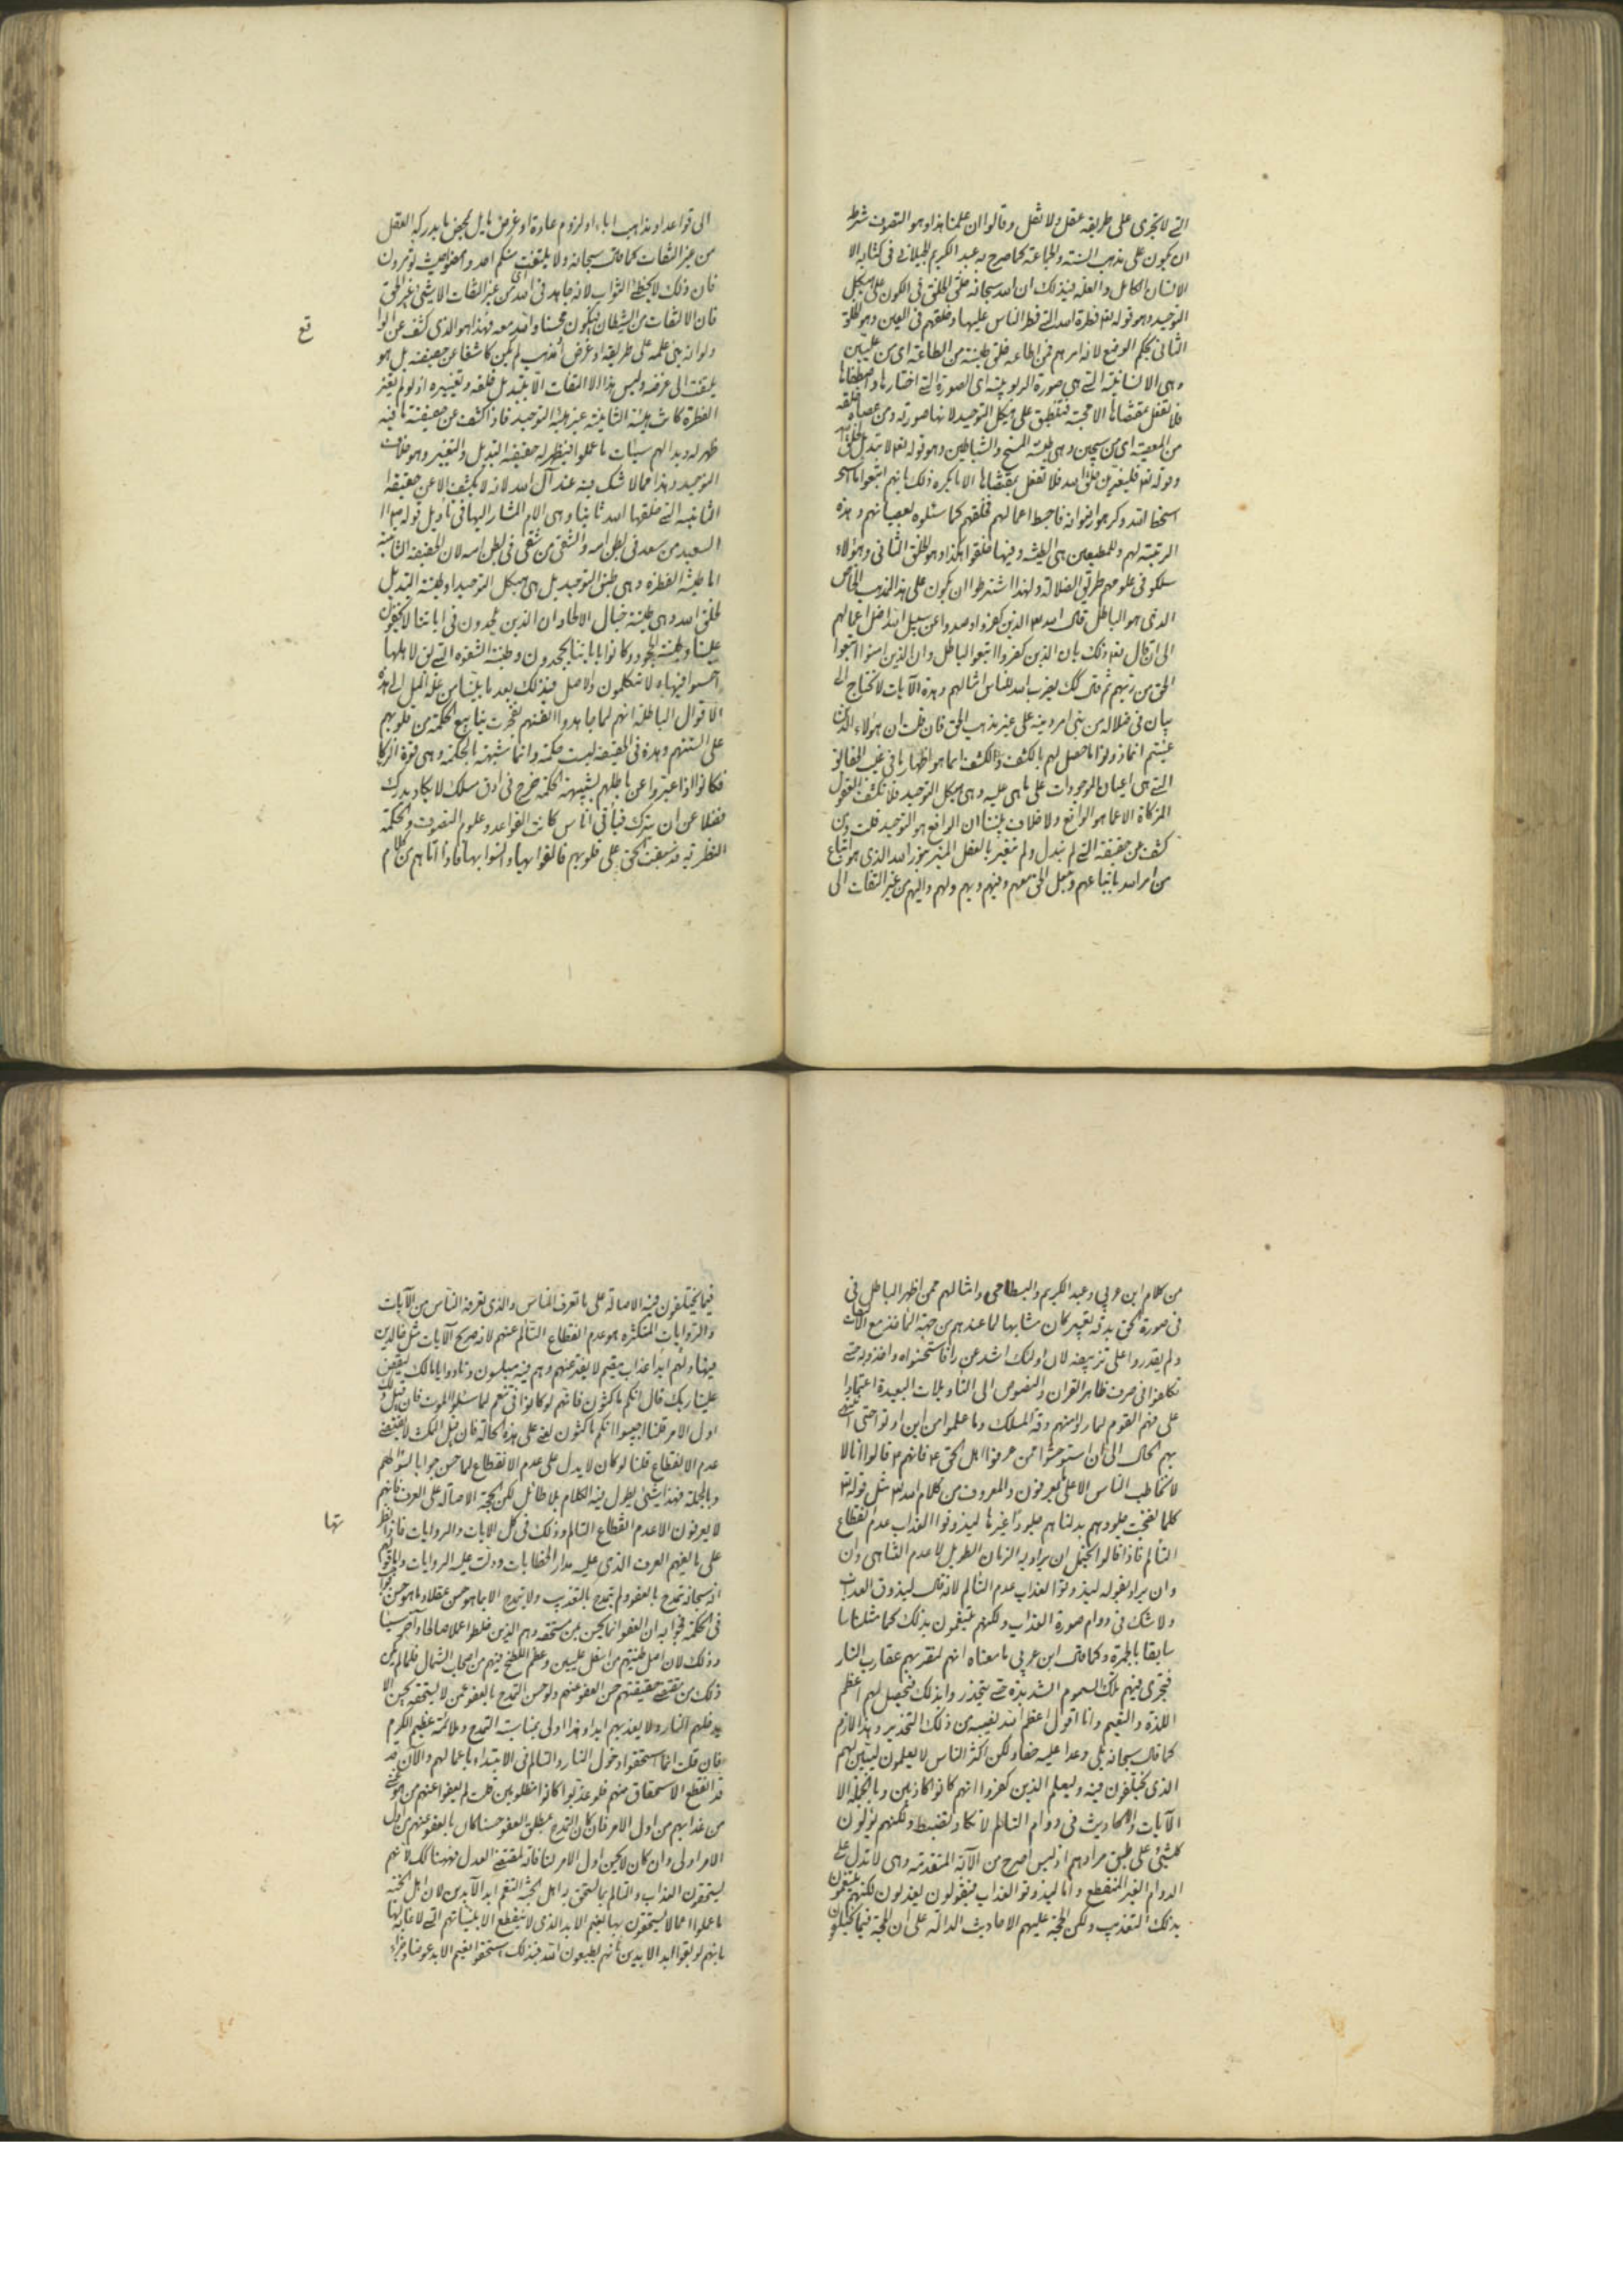 التي لا تجري على طريقة عقل ولا نقل وقالوا ان علمنا هذا وهو التصوف شرطه
ان يكون على مذهب السنة والجماعة كما صرح به عبد الكريم الجيلاني في كتابه الا
الانسان الكامل والعلة في ذلك ان الله سبحانه خلق الخلق في الكون على هيكل
التوحيد وهو قوله تع فطرة الله التي فطر الناس عليها وخلقهم في العين وهو الخلق
الثاني بحكم الوضع لانه امرهم فمن اطاعه خلق طينته من الطاعة اى من عليين
وهي الانسانية التي هي صورة الربوبية اى الصورة التي اختارها واصطفاها
فلا تفعل بمقتضاها الا محبته فتنطبق على هيكل التوحيد لانها صورته ومن عصاه خلقه
من المعصية اى من سجين وهي طينة المسخ والشياطين وهو قوله تع لا تبديل لخلق الله
وقوله تع فليغيرن خلق الله فلا تفعل بمقتضاها الا ما يكره ذلك بانهم اتبعوا ما
اسخط الله وكرهوا رضوانه فاحبط اعمالهم فخلقهم كما سئلوه بعصيانهم وهذه
الرتبة لهم وللمطيعين هي الطينة وفيها خلقوا هكذا وهو الخلق الثاني وهؤلاء
سلكوا في علومهم طريق الضلالة ولهذا اشترطوا ان يكون على هذا المذهب الخاص
الذي هو الباطل قال الله تع الذين كفروا وصدوا عن سبيل الله اضل اعمالهم
الى ان قال تع ذلك بان الذين كفروا اتبعوا الباطل وان الذين امنوا اتبعوا
الحق من ربهم ثم قال كذلك يضرب الله للناس امثالهم وهذه الآيات لا تحتاج الى
بيان في ضلالة من بنى امر دينه على غير مذهب الحق فان قلت ان هؤلاء الذين
عنيتم انما ذلوا ما حصل لهم بالكشف والكشف انما هو اظهار ما في غيب
التي هي اعيان الموجودات على ما هي عليه وهي هيكل التوحيد فلا تكشف العقول
المزكاة الا عما هو الواقع ولا خلاف بيننا ان الواقع هو التوحيد قلت من
كشف عن حقيقته التي لم تبدل ولم تتغير بالعقل المنير بنور الله الذي هو اتباع
من امر الله باتباعهم وجعل الحق معهم وفيهم وبهم ولهم واليهم من غير التفات الى
الى قواعد او مذاهب اباء او لزوم عادة او غرض مايل بمحض ما يدركه العقل
من غير التفات كما قال سبحانه ولا يلتفت منكم احد وامضوا حيث تؤمرون
فان ذلك لا يخطئ الثواب لانه جاهد في الله من غير التفات الا لشيء غير الحق
فان الالتفات من الشيطان فيكون محسنا والله معه فهذا هو الذي كشف عن الوا
قع
ولو انه بنى علمه على طريقة او غرض او مذهب لم يكن كاشفا عن حقيقته بل هو
يلتفت الى غرضه وليس هذا الالتفات الا بتبديل خلقه وتغييره اذ لو لم يغير
الفطرة كانت هيئته الثانية عين هيئة التوحيد فاذا كشف عن حقيقته بانه
ظهر له وبدا لهم سيئات ما عملوا فيظهر له حقيقة التبديل والتغيير وهو خلاف
التوحيد وهذا مما لا شك فيه عند آل الله لانه لا يكشف الا عن حقيقته
الثانية التي خلقها الله ثانيا وهي الام المشار اليها في تأويل قوله
السعيد من سعد في بطن امه والشقي من شقي في بطن امه لان الحقيقة الثانية
اما طينة الفطرة وهي طبق التوحيد بل هي هيكل التوحيد او طينة التبديل
لخلق الله وهي طينة خبال الالحاد ان الذين يلحدون في اياتنا لا يخفون
علينا وطينة الجحود وكانوا باياتنا يجحدون وطينة الشقوة التي لاهلها
اخسئوا فيها ولا تكلمون والاصل في ذلك بعد ما بينا من علة الميل الى هذه
الاقوال الباطلة انهم لما جاهدوا انفسهم تفجرت ينابيع الحكمة من قلوبهم
على السنتهم وهذه في الحقيقة ليست حكمة وانما شبيهة بالحكمة وهي قوة الذكا
فكانوا اذا عبروا عن باطلهم بشبيهة الحكمة خرج في ادق مسلك لا يكاد يدرك
فضلا عن ان يترك فيأتى اناس كانت القواعد وعلوم التصوف والحكمة
النظرية قد سبقت الحق على قلوبهم فالفوا بها وانسوا بها فاذا اتاهم من كلام
من كلام ابن عربي وعبد الكريم والبسطامي وامثالهم ممن اظهر الباطل في
في صورة الحق بدقة تعبير كان مشابها لما عندهم من جهة المأخذ مع
ولم يقدروا على تزييفه لان اولئك اشد غورا فاستحسنوه واخذوه حتى
تكلفوا في صرف ظاهر القران والنصوص الى التأويلات البعيدة اعتمادا
على فهم القوم لما راوا منهم دقة المسلك وما علموا من اين اوتوا حتى انتهى
بهم الحال الى ان استوحشوا ممن عرفوا اهل الحق ع فانهم ع قالوا انا لا
لا نخاطب الناس الا على ما يعرفون والمعروف من كلام الله تع مثل قوله تع
كلما نضجت جلودهم بدلناهم جلودا غيرها ليذوقوا العذاب عدم انقطاع
التألم فاذا قالوا يحتمل ان يراد به الزمان الطويل لا عدم التناهي وان
وان يراد بقوله ليذوقوا العذاب عدم التألم لانه قال ليذوق العذاب
ولا شك في دوام صورة العذاب ولكنهم يتنعمون بذلك كما مثلنا
سابقا بالجمرة وكما قال ابن عربي ما معناه انهم لتقربهم عقارب النار
فتجري فيهم تلك السموم الشديدة حتى يتخدر بذلك فيحصل لهم اعظم
اللذة والنعيم وانا اقول اعظم لذة نفسه من ذلك التخدير وهذا لازم
كما قال سبحانه بلى وعدا عليه حقا ولكن اكثر الناس لا يعلمون ليبين لهم
الذي يختلفون فيه وليعلم الذين كفروا انهم كانوا كاذبين وبالجملة الا
الآيات والاحاديث في دوام التألم لا تكاد تنضبط ولكنهم يأولون
كل شيء على طبق مرادهم اذ ليس اصرح من الآية المتقدمة وهي لا تدل على
الدوام الغير المنقطع واما ليذوقوا العذاب فيقولون يعذبون لكنهم يتنعمون
بذلك التعذيب ولكن الحجة عليهم الاحاديث الدالة على ان الحجة فيما يختلفون
فيما يختلفون فيه الاصالة على ما تعرف الناس والذي يعرفه الناس من الآيات
والروايات المتكثرة هو عدم انقطاع التألم عنهم لانه صريح الآيات مثل خالدين
فيها ولهم ابدا عذاب مقيم لا يفتر عنهم وهم فيه مبلسون ونادوا يا مالك ليقض
علينا ربك قال انكم ماكثون فانهم لو كانوا في تنعم لما سئلوا الموت فان قيل ذلك
اول الامر قلنا اجيبوا انكم ماكثون يعنى على هذه الحالة فان قيل المكث لا يقتضى
عدم الانقطاع قلنا لو كان لا يدل على عدم الانقطاع لما حسن جوابا لسؤالهم
وبالجملة فهذا شيء يطول فيه الكلام بلا طائل لكن الحجة الاصالة على العرف فانهم
لا يعرفون الا عدم انقطاع التألم وذلك في كل الايات والروايات فاذا نظر
تها
على ما يفهم العرف الذي عليه مدار الخطابات ودلت عليه الروايات واما قولهم
انه سبحانه تمدح بالعفو ولم يتمدح بالتعذيب ولا يتمدح الا بما هو حسن عقلا وما هو حسن
في الحكمة فجوابه ان العفو انما يحسن عمن يستحقه وهم الذين خلطوا عملا صالحا وآخر سيئا
وذلك لان اصل طينتهم من اسفل عليين وعظم اللطخ فيهم من اصحاب الشمال فلما لم يكن
ذلك من مقتضى حقيقتهم حسن العفو عنهم ولو حسن التمدح بالعفو عمن لا يستحقه لحسن الا
يدخلهم النار ولا يعذبهم ابدا وهذا اولى بمناسبة التمدح وملائمة عظيم الكرم
فان قلت انما استحقوا دخول النار والتألم في الابتداء باعمالهم والآن قد
قد انقطع الاستحقاق منهم فلو عذبوا كانوا مظلومين قلت لم لم يعفوا عنهم من هو غني
من عذابهم من اول الامر فان كان التمدح بمطلق العفو حسنا كان بالعفو عنهم من اول
الامر اولى وان كان لا يحسن اول الامر لمنافاته لمقتضى العدل فههنا كذلك لانهم
يستحقون العذاب والتألم بما يستحق به اهل الجنة التنعم ابد الآبدين لان اهل الجنة
ما عملوا اعمالا يستحقون بها نعيم الابد الذي لا ينقطع الا بنياتهم التي لا نهاية لها
بانهم لو بقوا ابد الابدين فانهم يطيعون الله فبذلك استحقوا نعيم الابد عوضا وجزاء